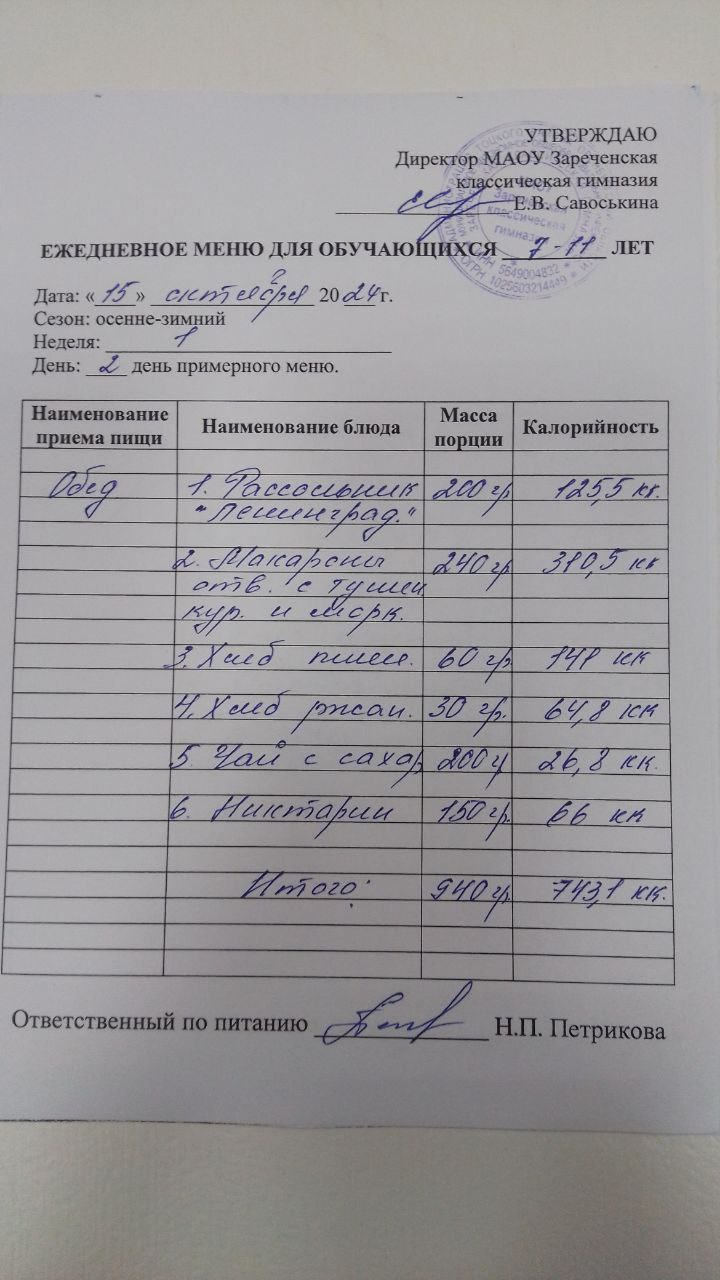 УТВЕРЖДАЮ
Директор МАОУ Зареченская
классическая гимназия
Е.В. Савоськина
МАОУ
Зареченская
классическая
гимназия
ИНН 5649004832
ОГРН 1025603214449
ЕЖЕДНЕВНОЕ МЕНЮ ДЛЯ ОБУЧАЮЩИХСЯ 7-11 ЛЕТ
Дата: «15» октября 2024 г.
Сезон: осенне-зимний
Неделя: 1
День: 2 день примерного меню.
Наименование приема пищи Наименование блюда Масса порции Калорийность
Обед 1. Рассольник 200 гр 125,5 кк.
"Ленинград."
2. Макароны 240 гр 310,5 кк
отв. с тушен
кур. и морк.
3. Хлеб пшен. 60 гр 141 кк
4. Хлеб ржан. 30 гр. 64,8 кк
5. Чай с сахар 200 гр 26,8 кк.
6. Никтарин 150 гр. 66 кк
Итого: 940 гр 743,1 кк.
Ответственный по питанию Н.П. Петрикова